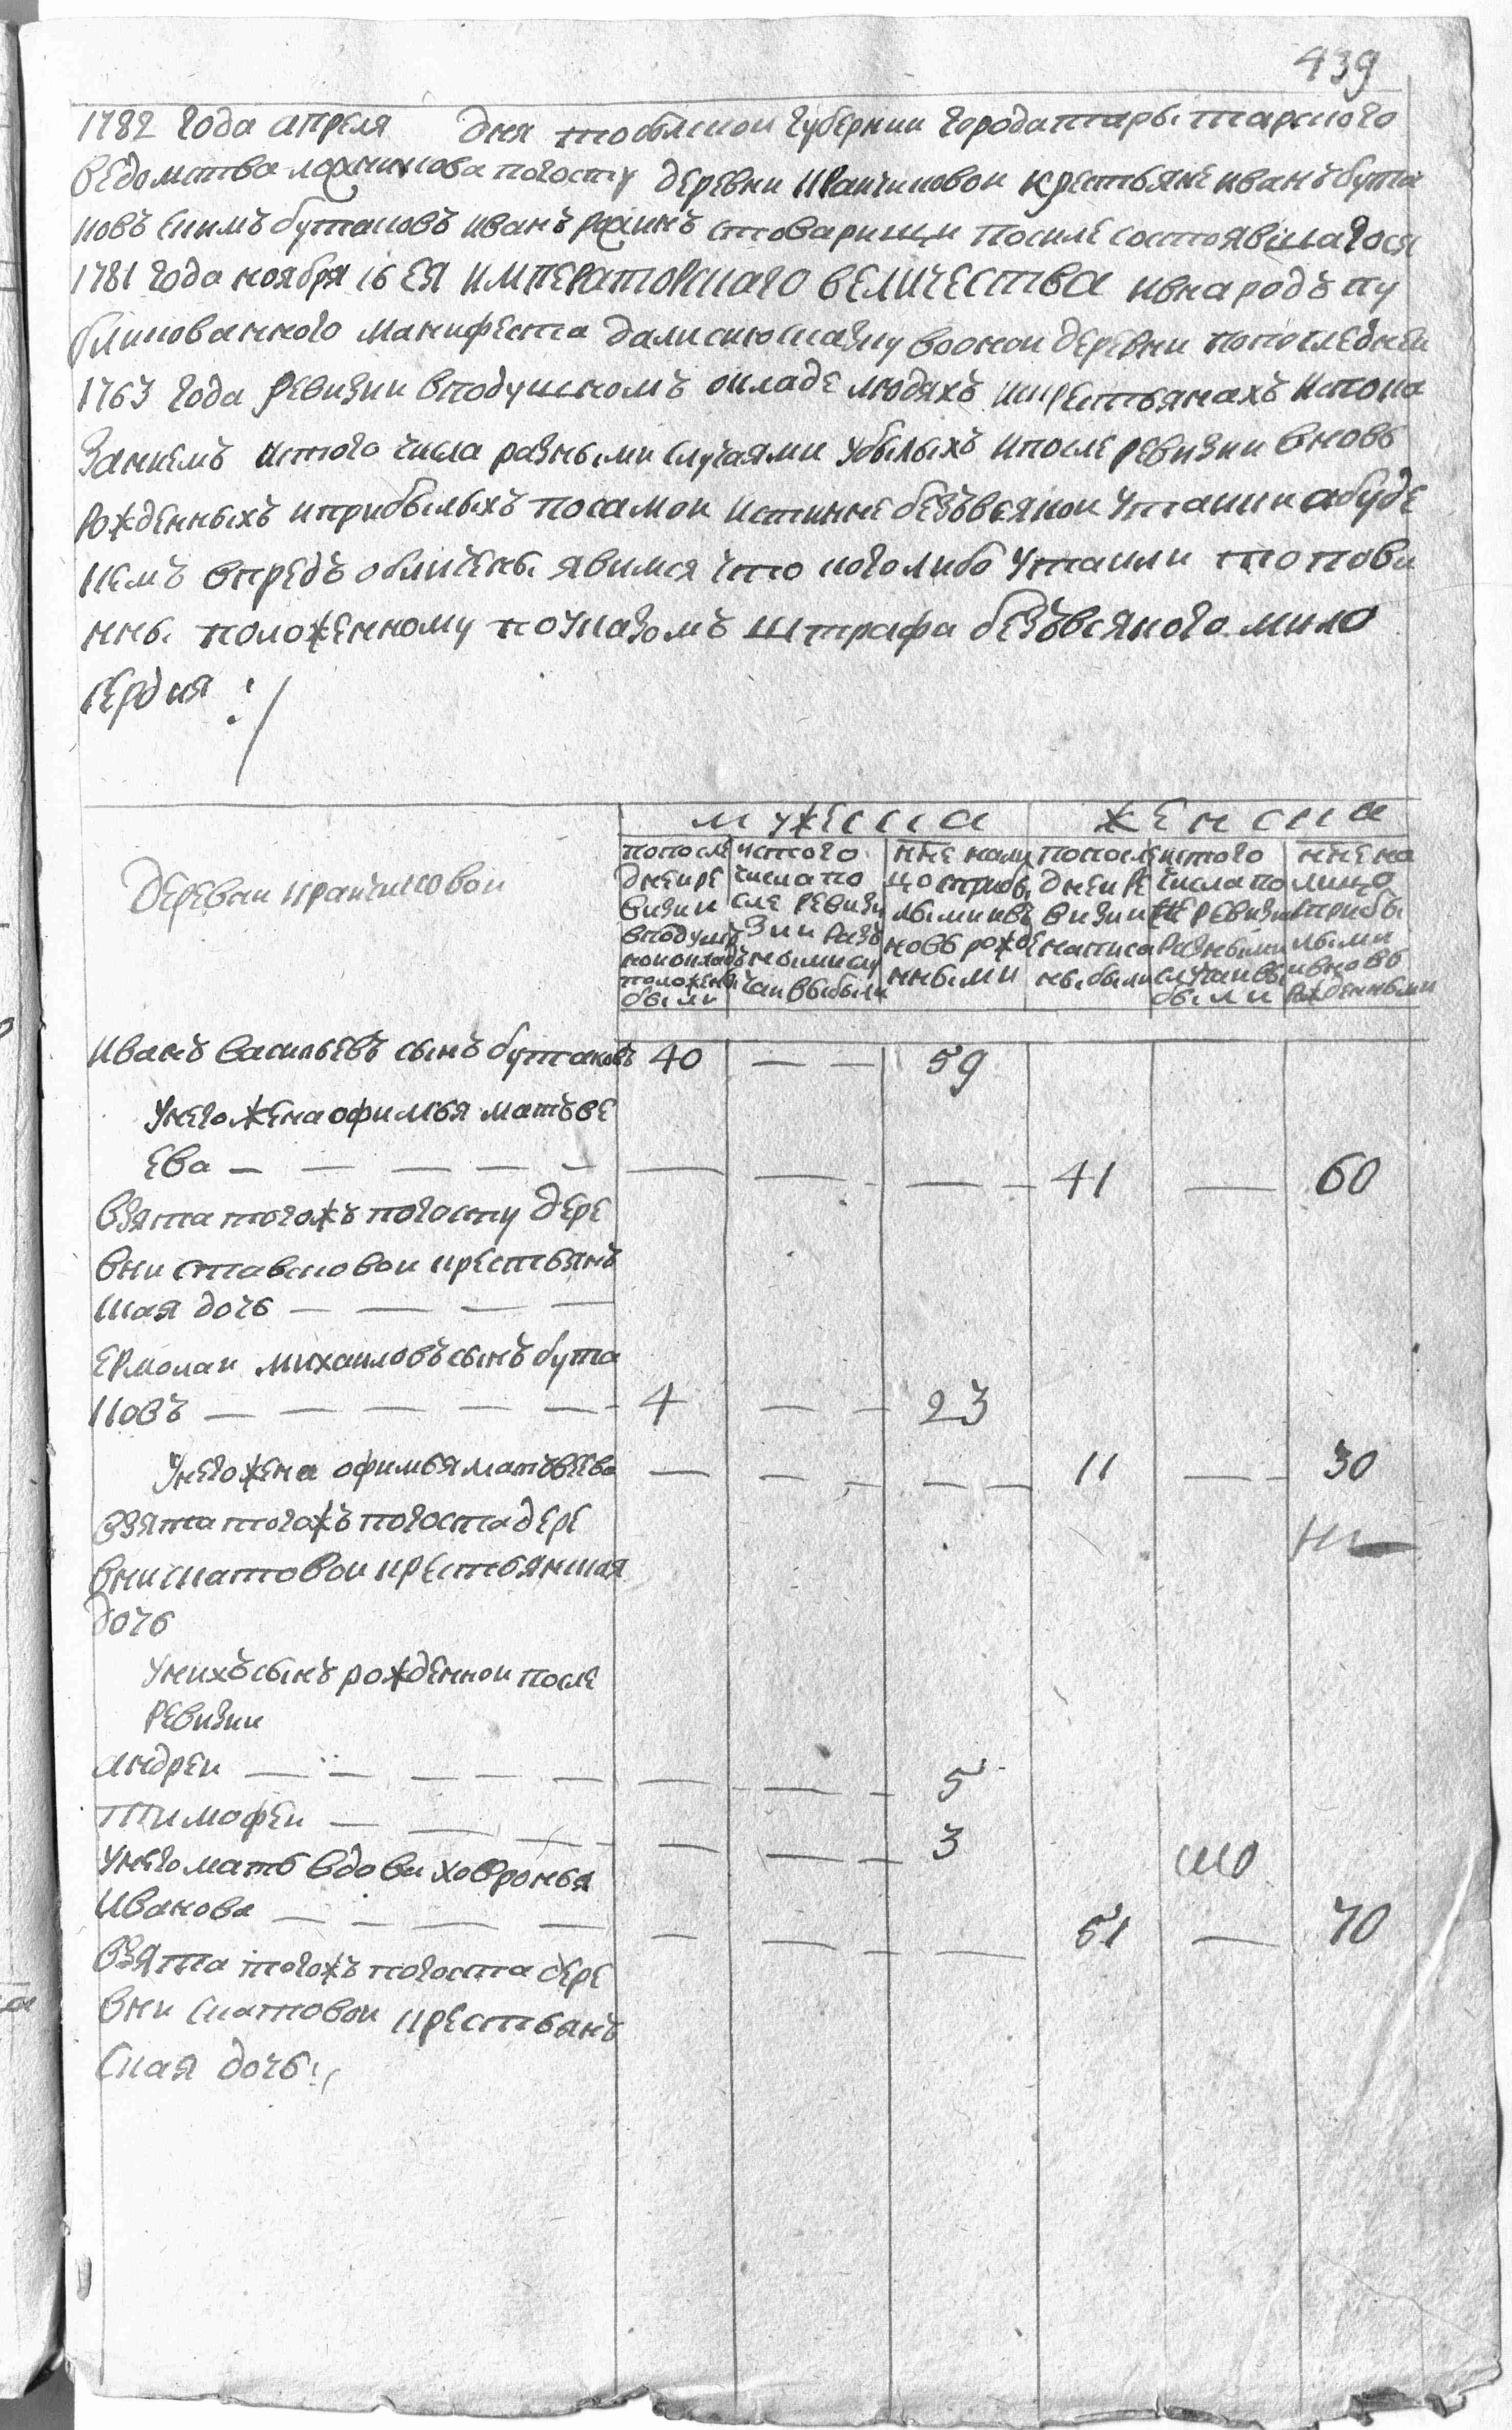 439
1782 года апреля дня тобольской губернии города тары тарского
ведомства логинова погосту деревни крайчиковой крестьяне иванъ бута
ковъ снимъ бутаковъ иванъ стоварищи посиле состоявшагося
1781 года ноября 16 ЕЯ ИМПЕРАТОРСКАГО ВЕЛИЧЕСТВА ивнародъ пу
бликованного манифеста дали сию скаску воонои деревни попоследней
1763 года ревизии вподушномъ окладе людяхъ икрестьянахъ испока
заниемъ истого числа разными случаями убылыхъ ипосле ревизии вновь
рожденныхъ иприбылыхъ посамои истинне безъвсякои утаики абуде
кемъ впредь обличены явимся что коголибо утаили то пови
нны положенному поуказомъ штрафа безъвсякого мило
сердия :/
деревни крайчиковои
мужеска
женска
попосле
дней ре
визии
вподуш
номокладъ
положены
были
истого
числа по
сле ревизи
зии разъ
ными слу
чаи выбыли
нне нали
цо сприбы
лыми ивъ
новь рожде
нными
попосле
дней ре
визии
написа
ны были
истого
числа по
сле ревизи
разными
случаи вы
были
нне на
лицо
сприбы
лыми
ивновь
рожденными
иванъ васильевъ сынъ бутаковъ 40 — — 59
унего жена офимья матъве
ева — — — — — — — — — 41 — 60
взята тогожъ погосту дере
вни ставсковои крестьянъ
ская дочь — — — —
ермолаи михаиловъ сынъ бута
ковъ — — — — — 4 — — 23
унего жена офимья матъвеева — — — — — 11 — — 30
взята тогожъ погоста дере
вни скатовои крестьянская
дочь
унихъ сынъ рожденнои после
ревизии
андреи — — — — — — — — 5
тимофеи — — — — — — — 3
унего мать вдова ховронья
иванова — — — — — — — — 51 — 70
взята тогожъ погоста дере
вни скатовои крестьянъ
ская дочь :/